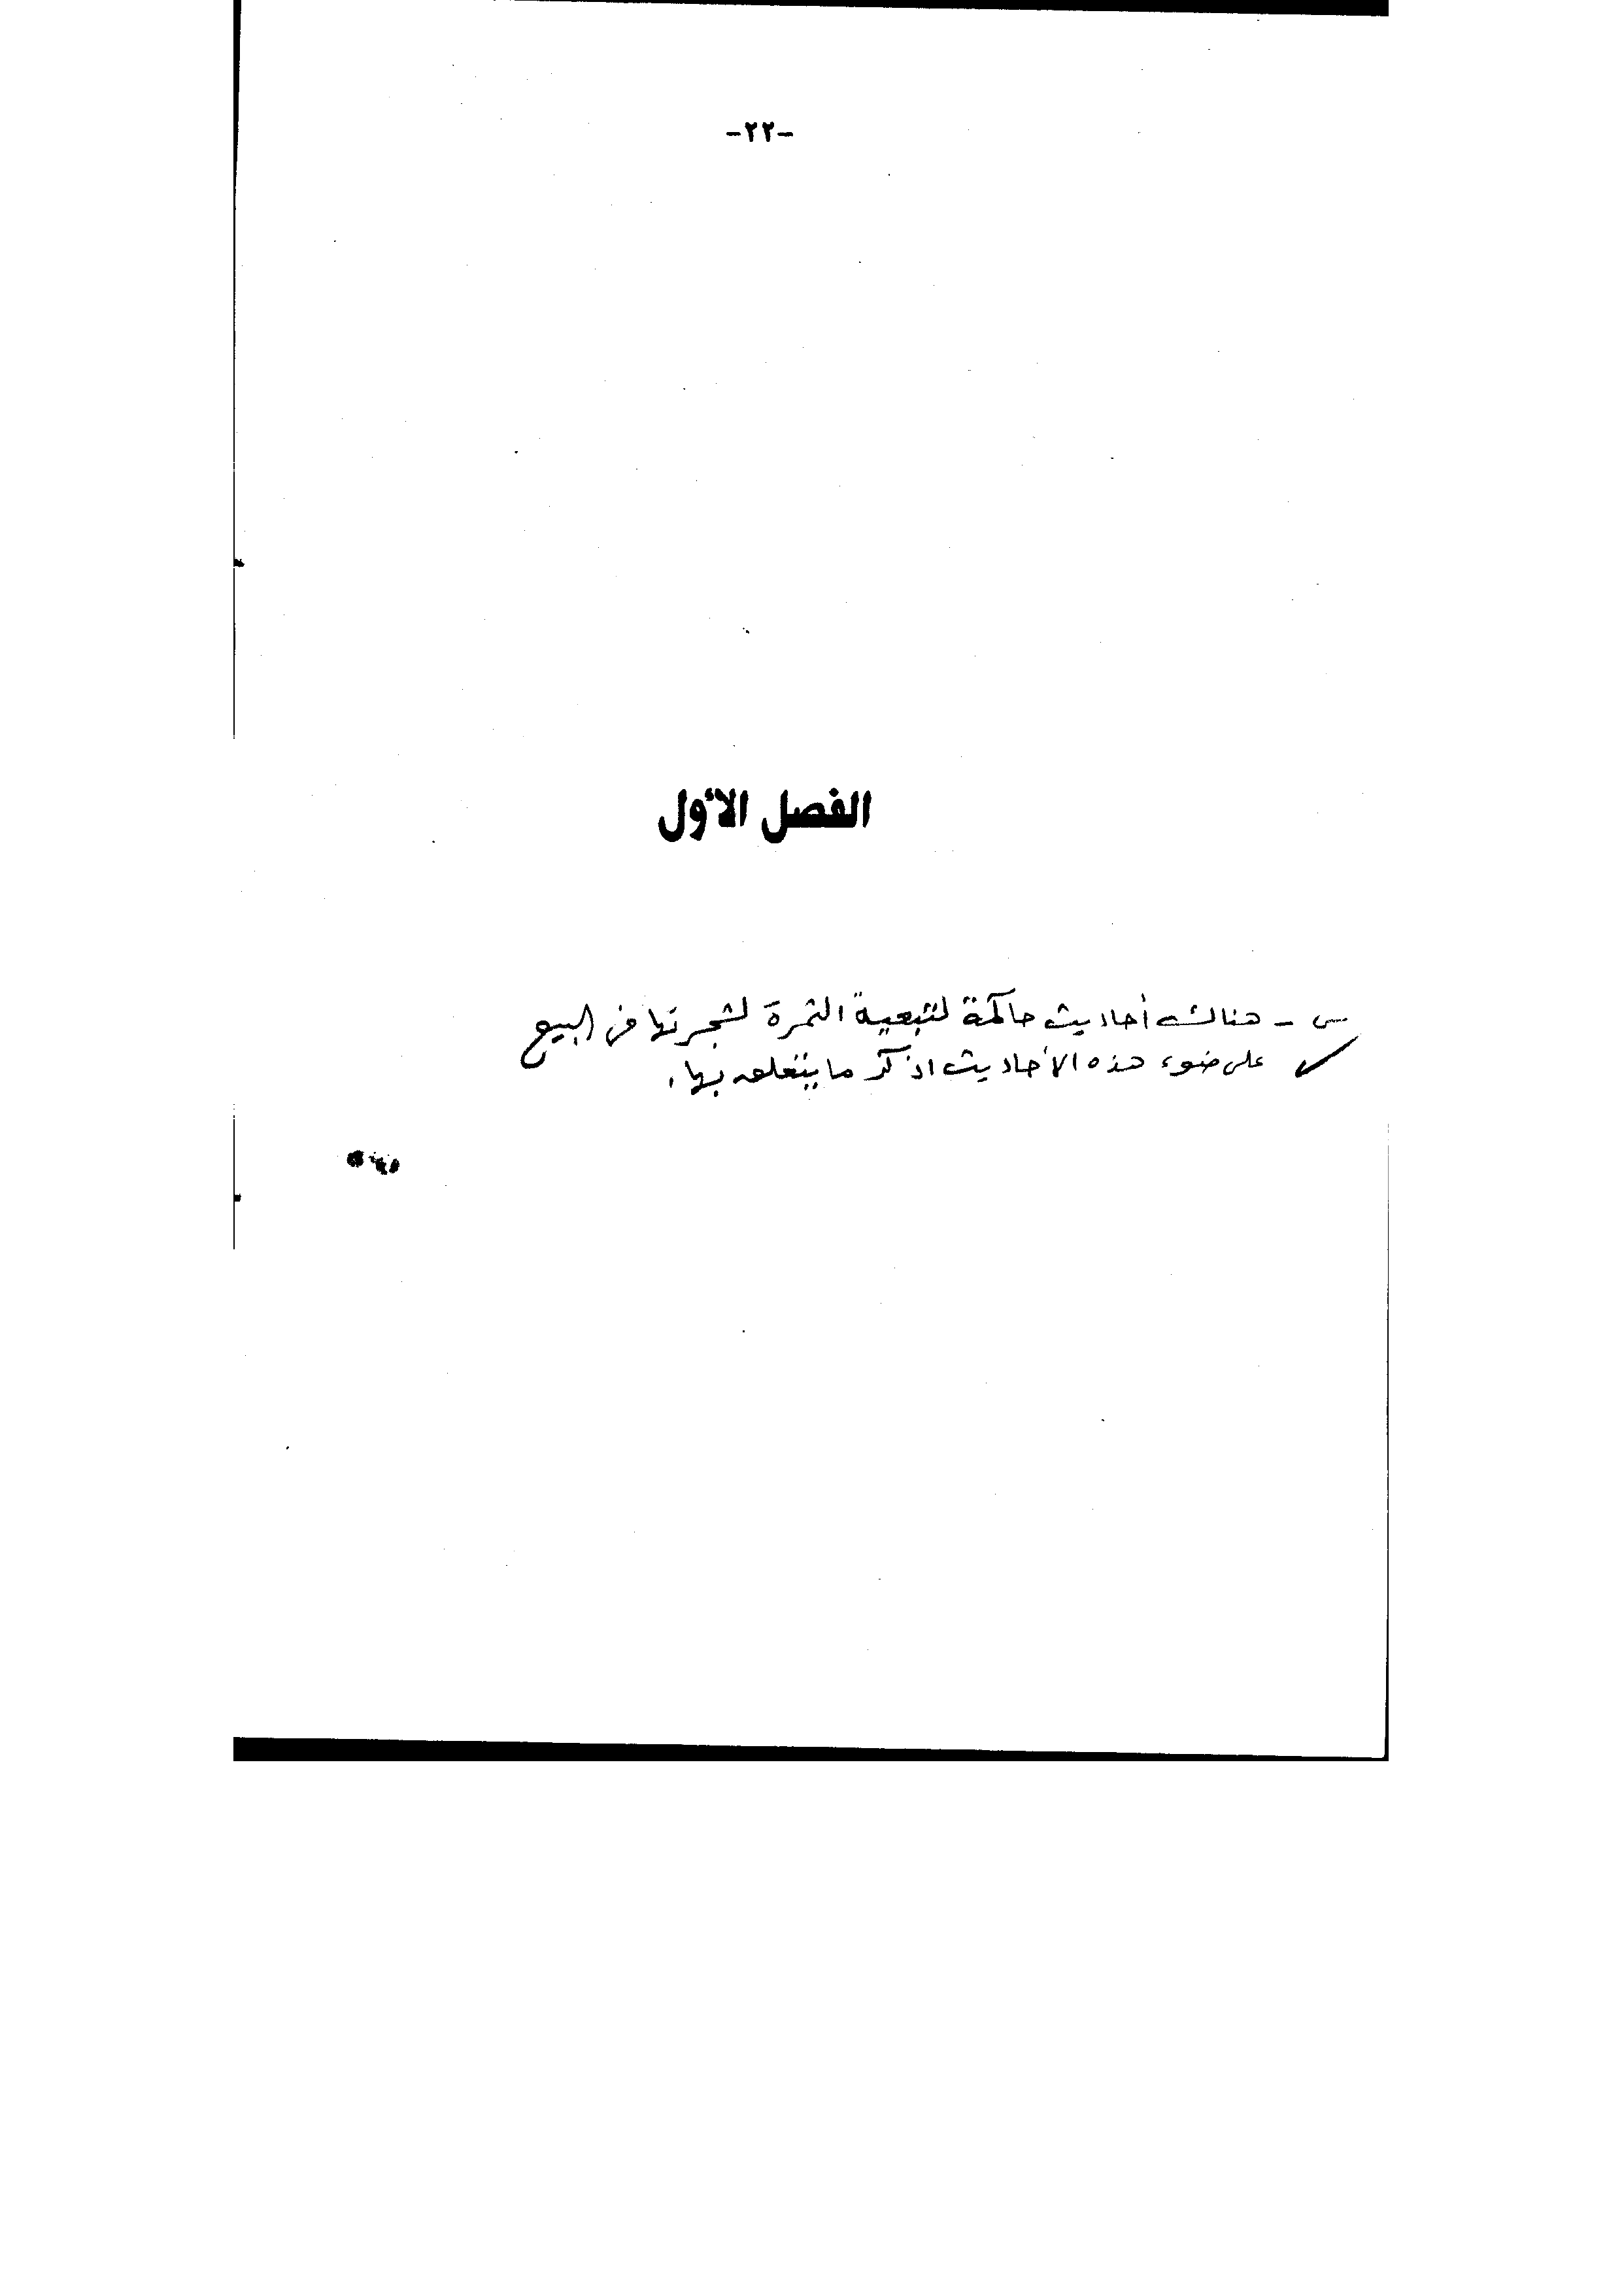 -٢٢-
الفصل الأول
س - هناك أحاديث حاكمة لتبعية الثمرة لشجرتها في البيع
على ضوء هذه الأحاديث اذكر ما يتعلق بها.